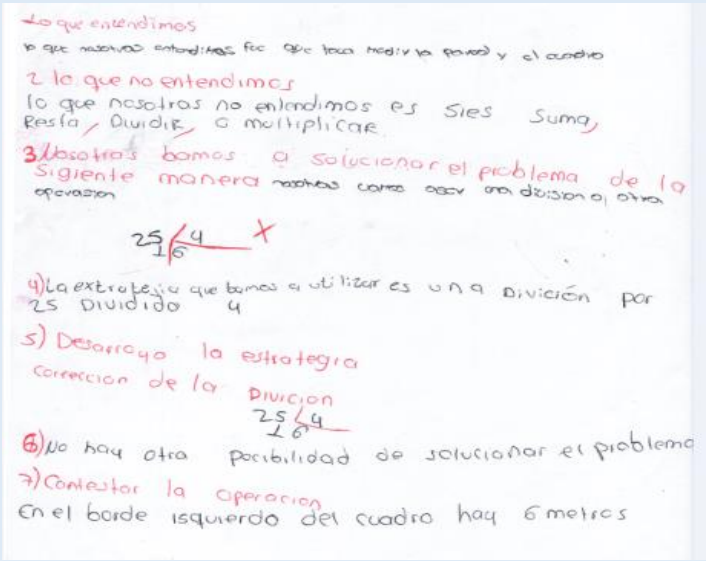 Lo que entendimos
lo que nosotras entendimos fue que toca medir la pared y el cuadro
2 lo que no entendimos
lo que nosotras no entendimos es sies suma,
Resta, Dividir, o multiplicar
3 Nosotras bamos a solucionar el problema de la
sigiente manera nosotras vamos acer una division o otra
operasion
25 4 X
1 6
4) La extrategia que bamos a utilizar es una División por
25 Dividido 4
5) Desarroyo la estrategia
correccion de la Divicion
25 4
1 6
6) No hay otra pocibilidad de solucionar el problema
7) Contestar la operacion
En el borde isquierdo del cuadro hay 6 metros